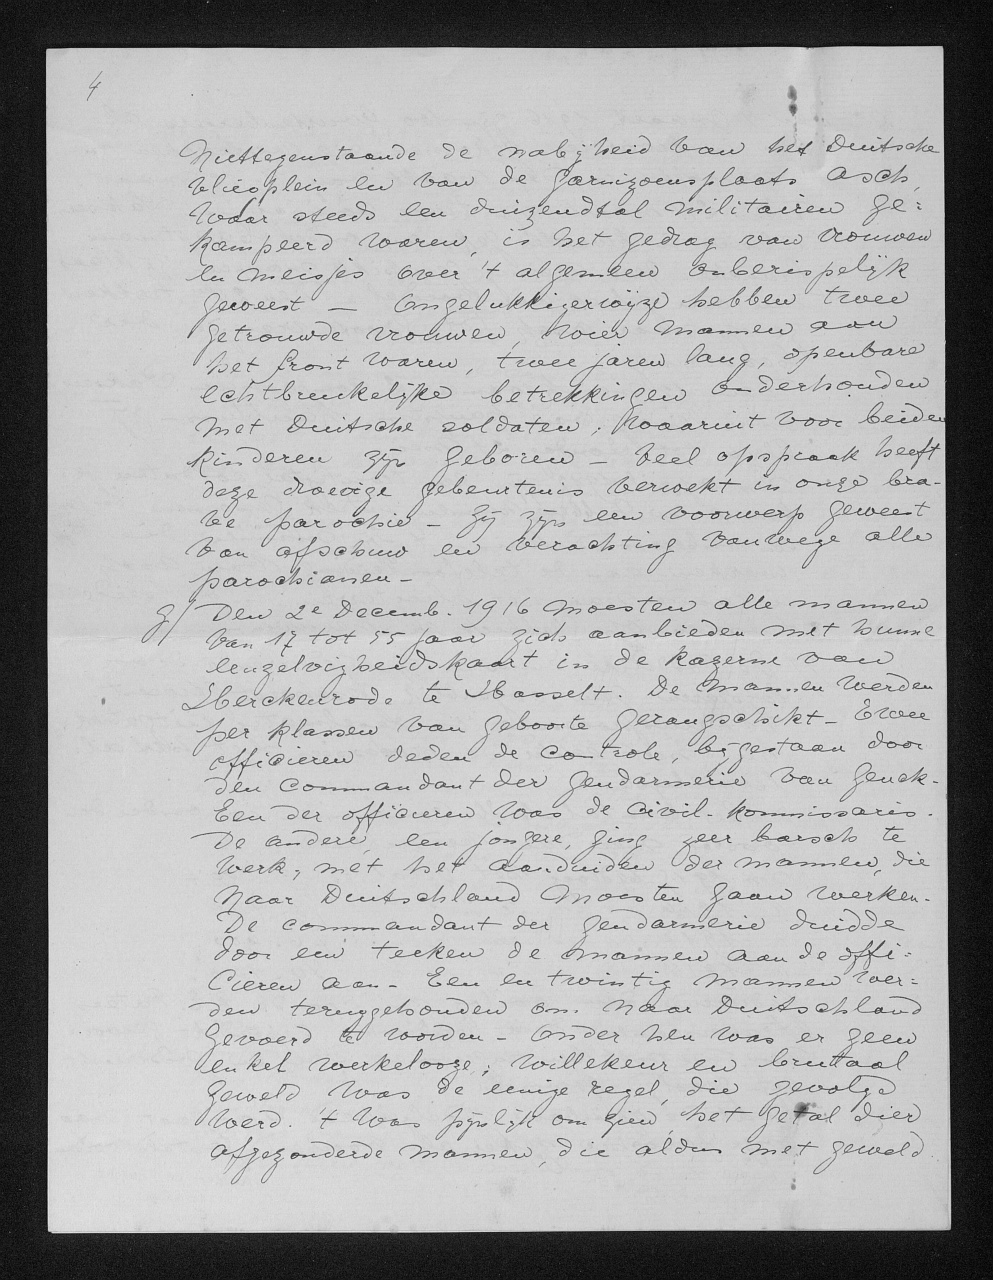 4
Niettegenstaande de nabijheid van het Duitsche
vliegplein en van de garnizoensplaats Asch,
waar steeds een duizendtal militairen ge=
kampeerd waren, is het gedrag van vrouwen
en meisjes over 't algemeen onberispelijk
geweest — Ongelukkigerwijze hebben twee
getrouwde vrouwen, wier mannen aan
het front waren, twee jaren lang, openbare
echtbreukelijke betrekkingen onderhouden
met Duitsche soldaten; waaruit voor beiden
kinderen zijn geboren — Veel opspraak heeft
deze droevige gebeurtenis verwekt in onze bra-
ve parochie — Zij zijn een voorwerp geweest
van afschuw en verachting vanwege alle
parochianen —
g/ Den 2e Decemb. 1916 moesten alle mannen
van 17 tot 55 jaar zich aanbieden met hunne
eenzelvigheidskaart in de kazerne van
Herckenrode te Hasselt. De mannen werden
per klassen van geboorte gerangschikt — Twee
officieren deden de controle, bijgestaan door
den commandant der gendarmerie van Genck.
Een der officieren was de civil-kommissaris.
De andere, een jongere, ging zeer barsch te
werk, met het aanduiden der mannen, die
naar Duitschland moesten gaan werken.
De commandant der gendarmerie duidde
door een teeken de mannen aan de offi-
cieren aan — Een en twintig mannen wer=
den teruggehouden om naar Duitschland
gevoerd te worden — Onder hen was er geen
enkel werkelooze; willekeur en brutaal
geweld was de eenige regel, die gevolgd
werd. 't was pijnlijk om zien, het getal dier
afgezonderde mannen, die aldus met geweld